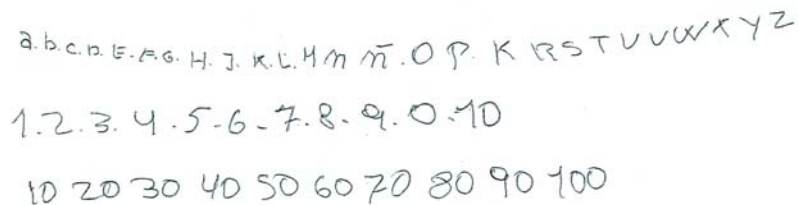 a.b.c.D.E.F.G.H.J.K.L.M n ñ.O P. K R S T U V W X Y Z
1.2.3.4.5-6-7.8.9.0.10
10 20 30 40 50 60 70 80 90 100